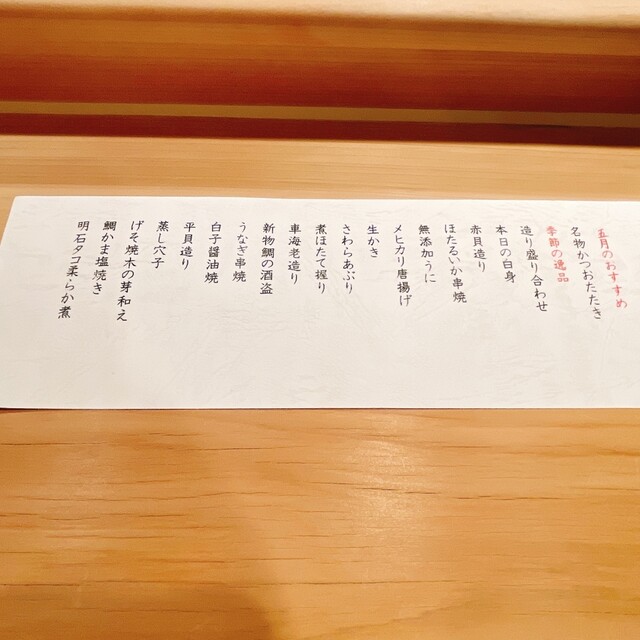 五月のおすすめ
名物かつおたたき
季節の逸品
造り盛り合わせ
本日の白身
赤貝造り
ほたるいか串焼
無添加うに
メヒカリ唐揚げ
生かき
さわらあぶり
煮ほたて握り
車海老造り
新物鯛の酒盗
うなぎ串焼
白子醤油焼
平貝造り
蒸し穴子
げそ焼木の芽和え
鯛かま塩焼き
明石タコ柔らか煮